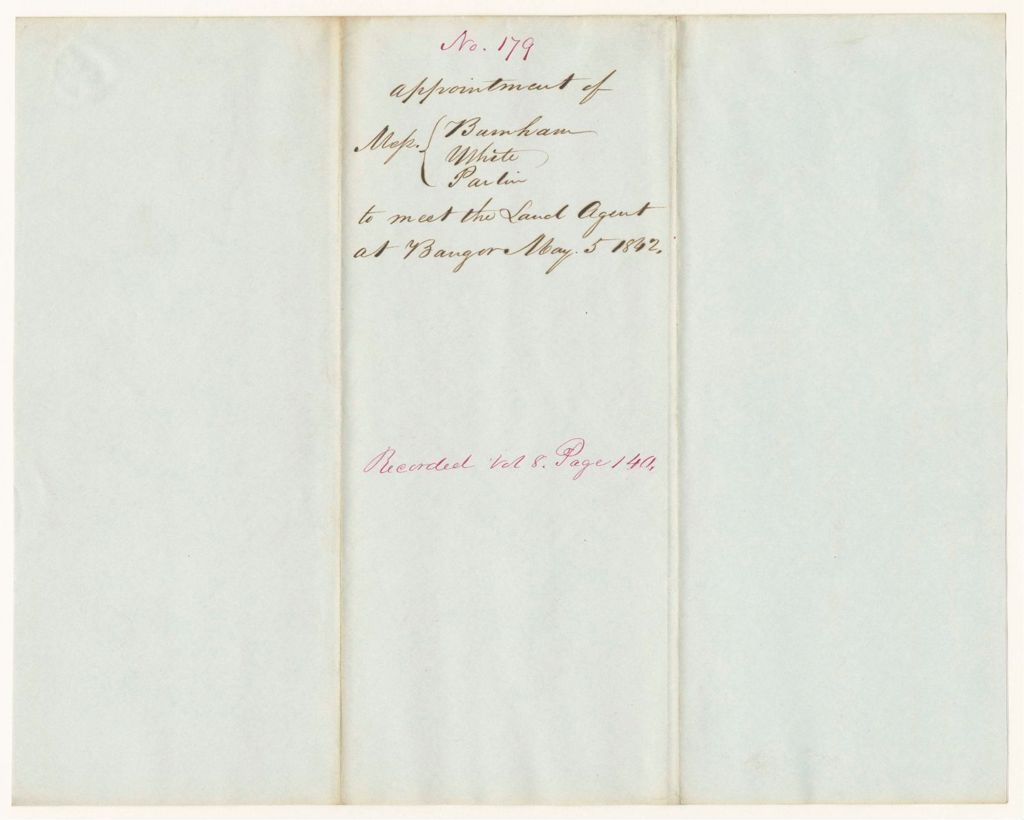 No. 179
appointment of
Mess. { Burnham
White
Parlin
to meet the Land Agent
at Bangor May. 5 1842.
Recorded Vol 8. Page 140.